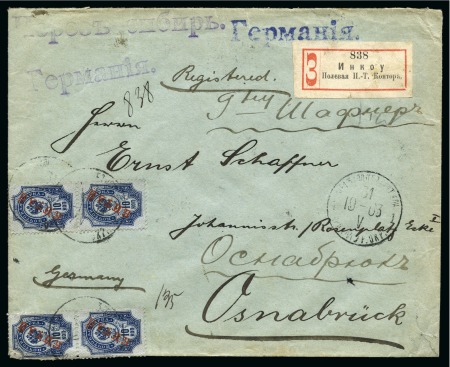 Черезъ Сибирь.
Германія.
Германія.
Registered.
838
Инкоу
Полевая П.-Т. Контора.
З
838
Г-ну Шафнеръ
Herrn
Ernst Schaffner
Johannisstr./Rosenplatz Ecke
Germany
Оснабрюкъ
135
Osnabrück
10
03
V